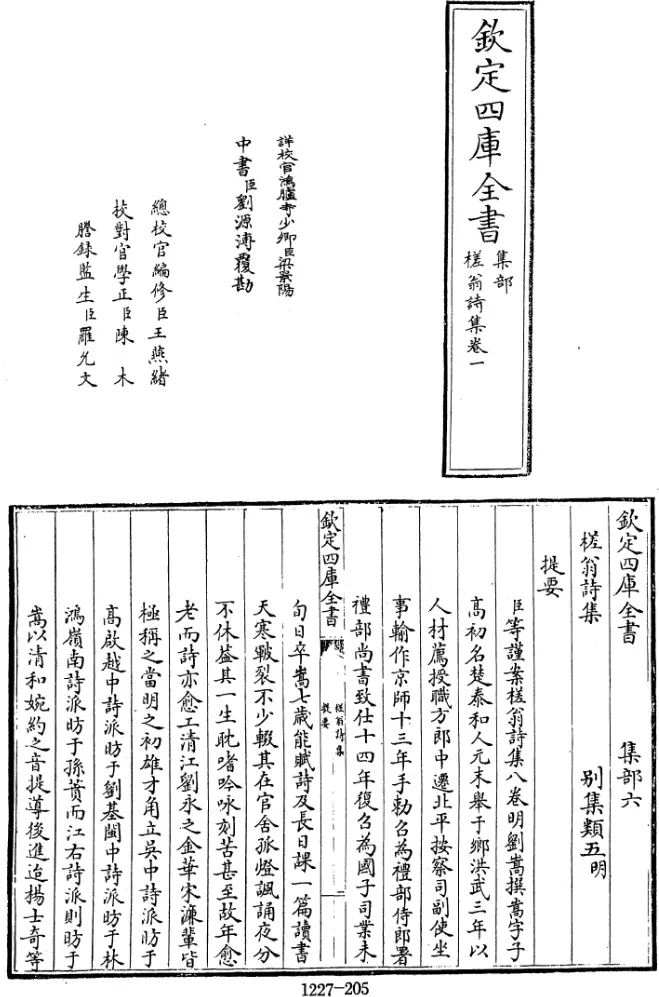 欽定四庫全書
集部
槎翁詩集卷一
詳校官鴻臚寺少卿臣梁景陽
中書臣劉源溥覆勘
總校官編修臣王燕緒
校對官學正臣陳木
謄錄監生臣羅允文
欽定四庫全書 集部六
槎翁詩集 別集類五明
提要
臣等謹案槎翁詩集八卷明劉嵩撰嵩字子
高初名楚泰和人元末舉于鄉洪武三年以
人材薦授職方郎中遷北平按察司副使坐
事輸作京師十三年手勅召為禮部侍郎署
禮部尚書致仕十四年復召為國子司業未
欽定四庫全書
槎翁詩集
提要
二
旬日卒嵩七歲能賦詩及長日課一篇讀書
天寒皸裂不少輟其在官舍孤燈諷誦夜分
不休葢其一生耽嗜吟咏刻苦甚至故年愈
老而詩亦愈工清江劉永之金華宋濂輩皆
極稱之當明之初雄才角立吳中詩派昉于
高啟越中詩派昉于劉基閩中詩派昉于林
鴻嶺南詩派昉于孫蕡而江右詩派則昉于
嵩以清和婉約之音提導後進迨楊士奇等
1227-205